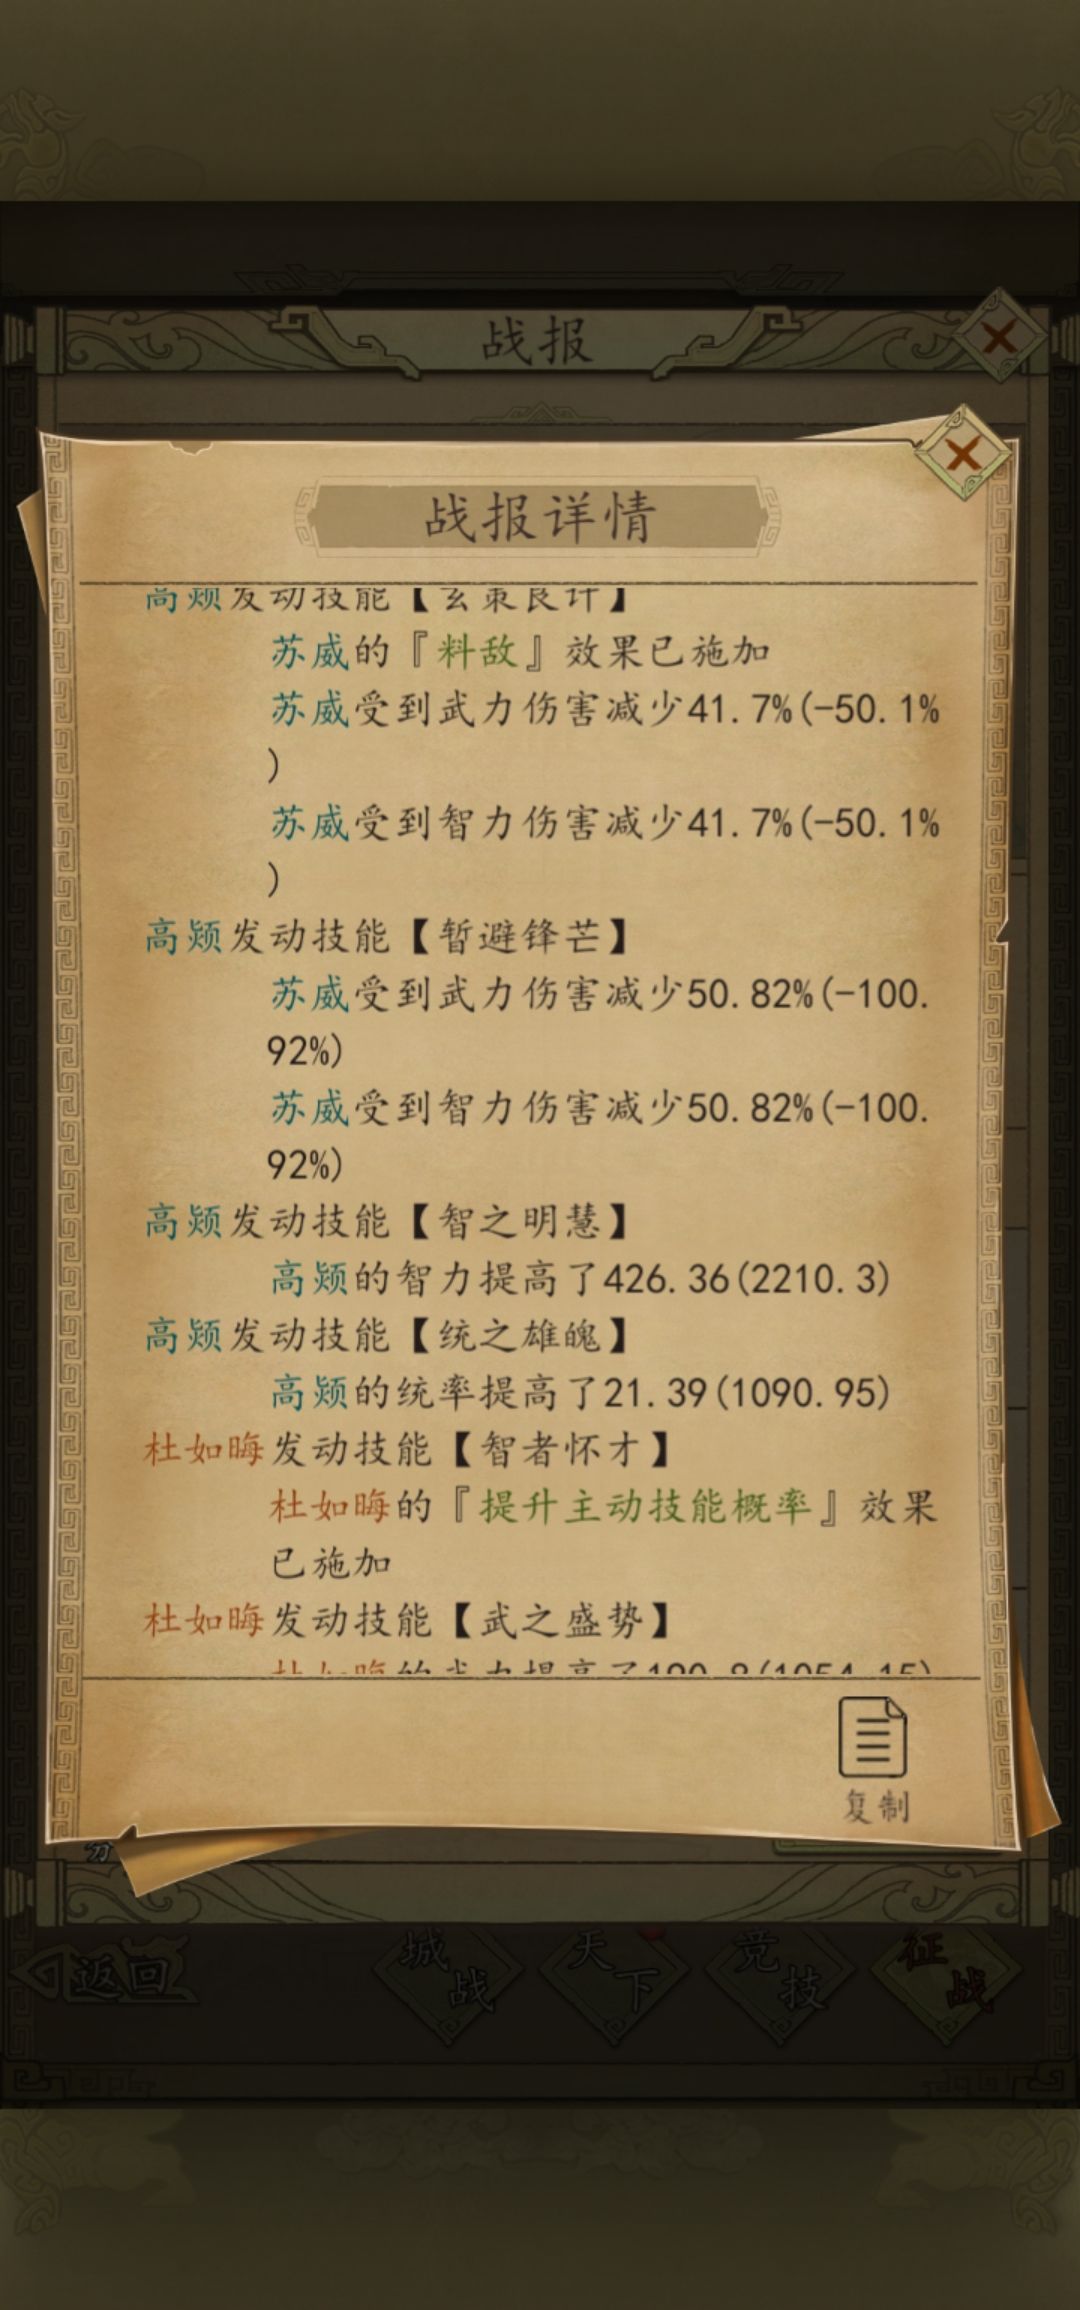 战报
战报详情
高颎发动技能【玄策良计】
苏威的『料敌』效果已施加
苏威受到武力伤害减少41.7%(-50.1%
)
苏威受到智力伤害减少41.7%(-50.1%
)
高颎发动技能【暂避锋芒】
苏威受到武力伤害减少50.82%(-100.
92%)
苏威受到智力伤害减少50.82%(-100.
92%)
高颎发动技能【智之明慧】
高颎的智力提高了426.36(2210.3)
高颎发动技能【统之雄魄】
高颎的统率提高了21.39(1090.95)
杜如晦发动技能【智者怀才】
杜如晦的『提升主动技能概率』效果
已施加
杜如晦发动技能【武之盛势】
杜如晦的武力提高了
复制
返回
城战
天下
竞技
征战